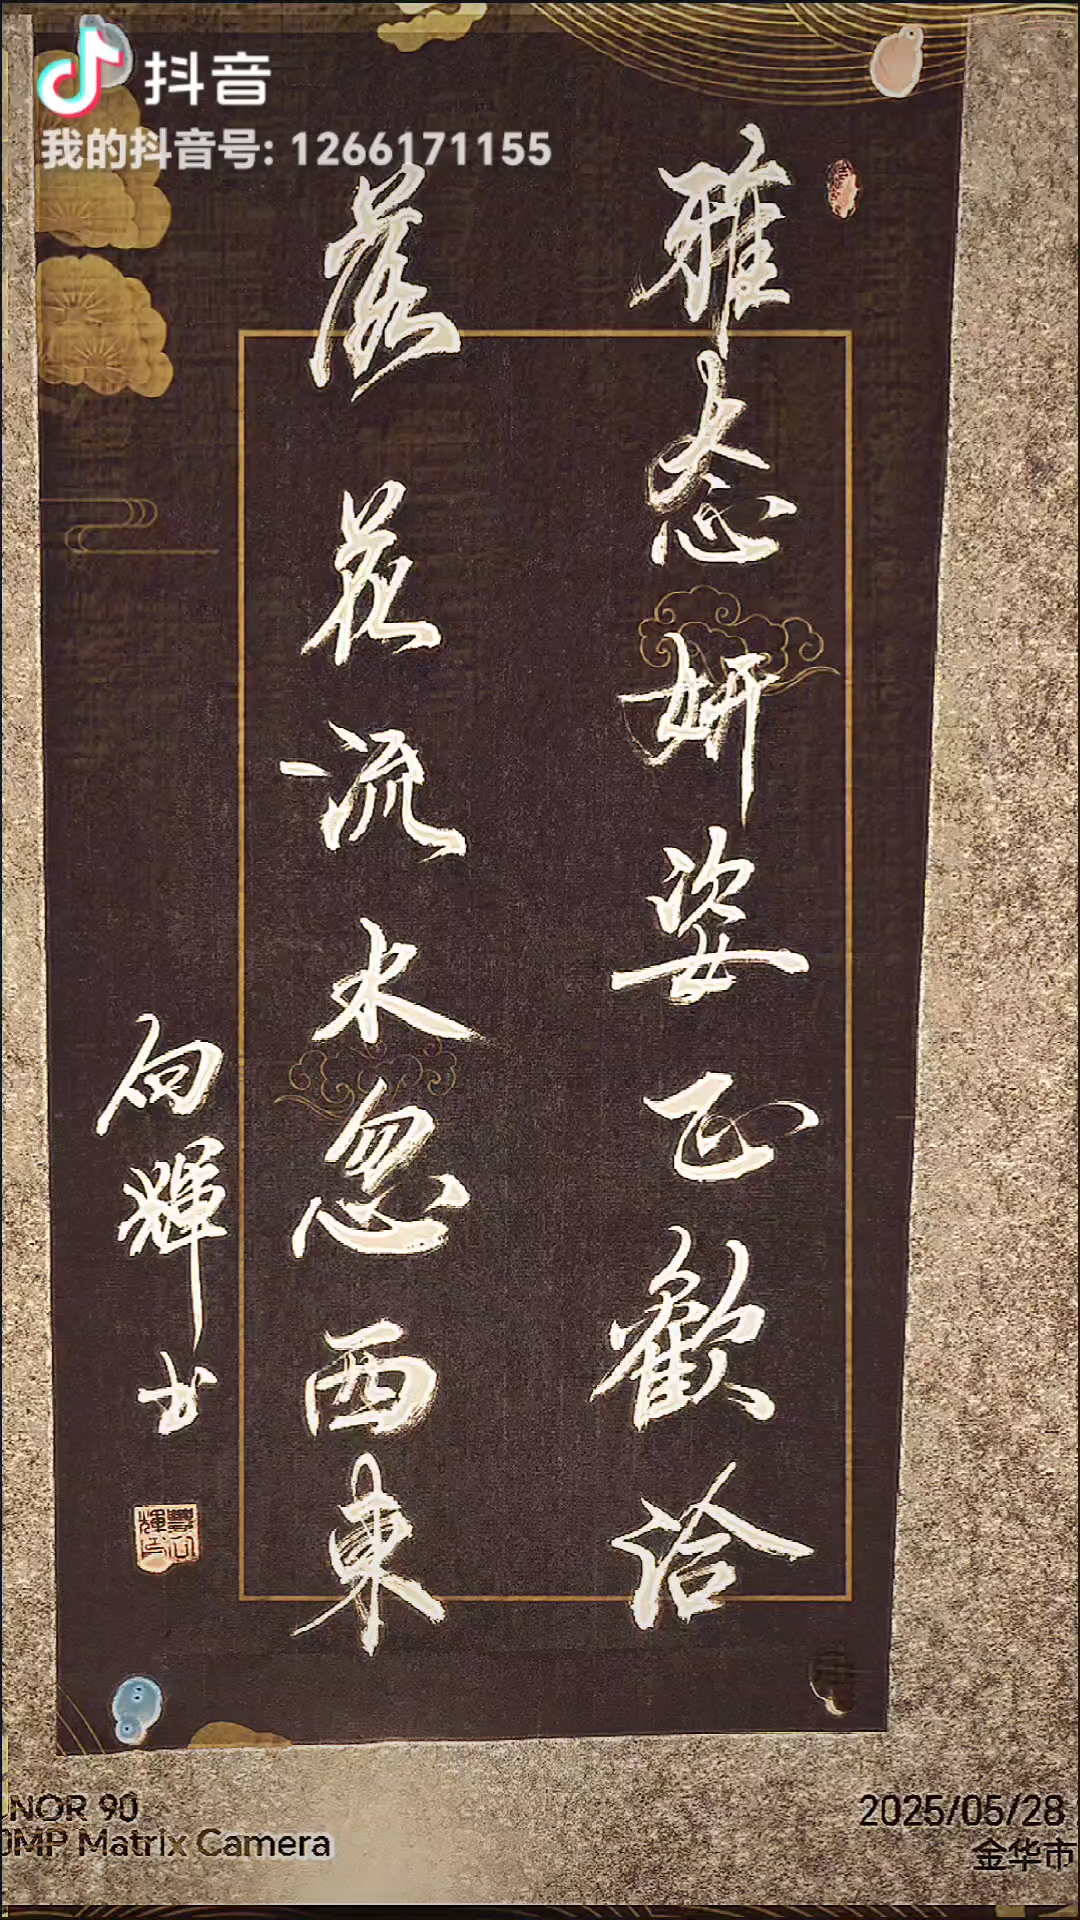 抖音
我的抖音号: 1266171155
雅态妍姿正歡洽
落花流水忽西東
向輝书
NOR 90
0MP Matrix Camera
2025/05/28
金华市